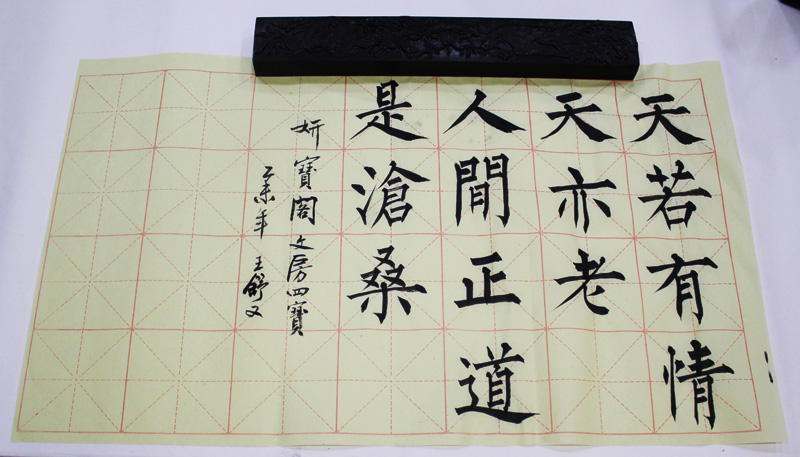 天若有情
天亦老
人間正道
是滄桑
妍寶閣文房四寶
乙未年 王舒又